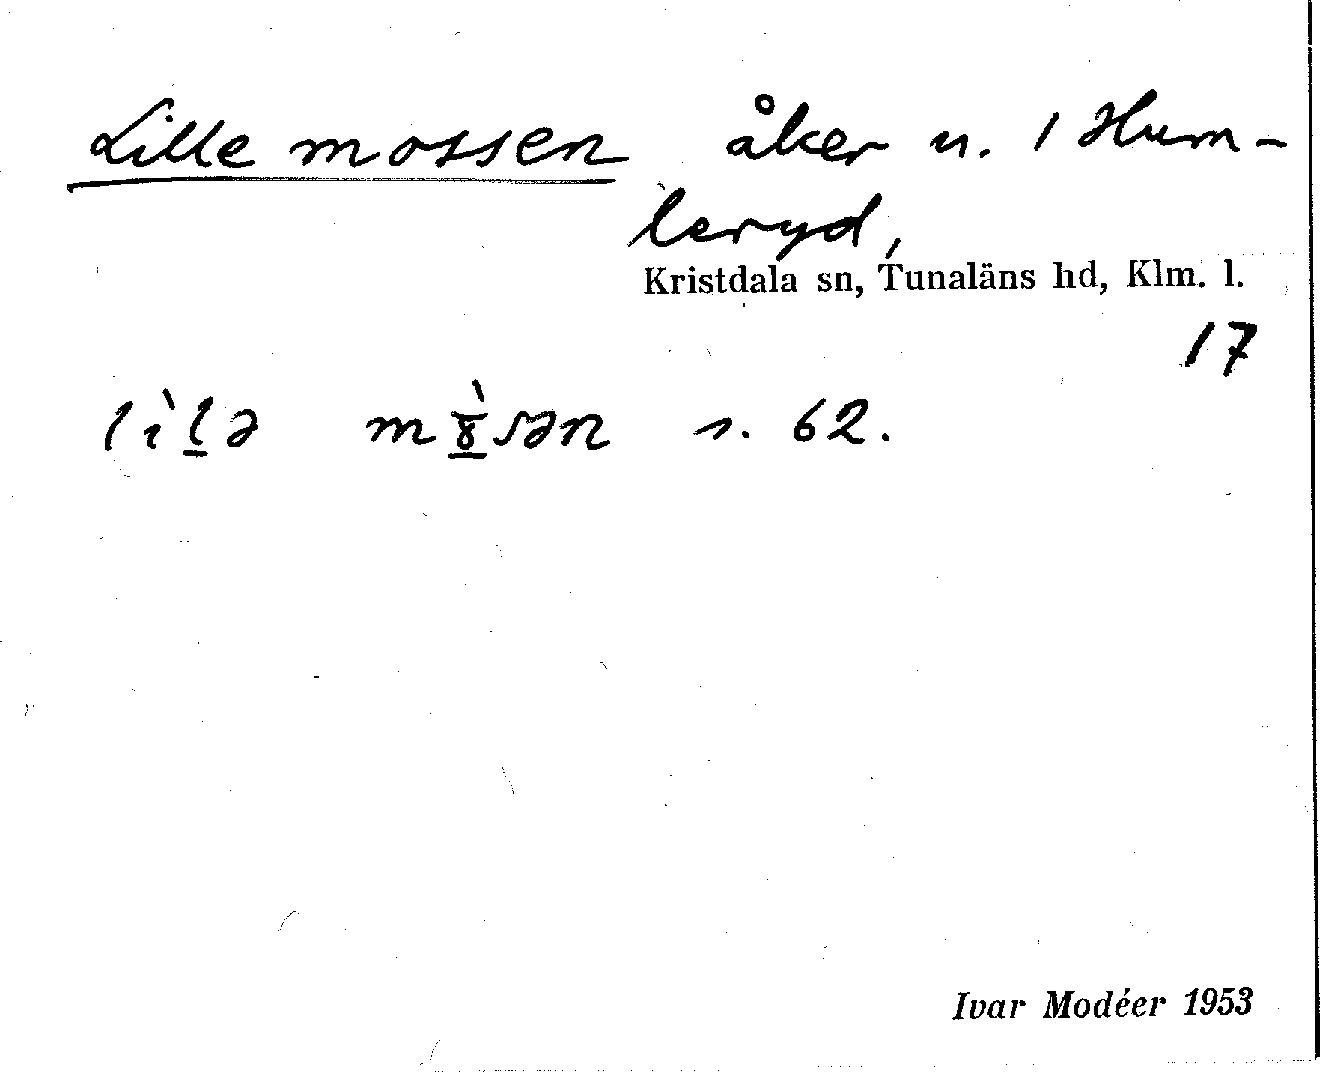 Lille mossen åker u. 1 Hum-
leryd,
Kristdala sn, Tunaläns hd, Klm. l.
17
s. 62.
Ivar Modéer 1953